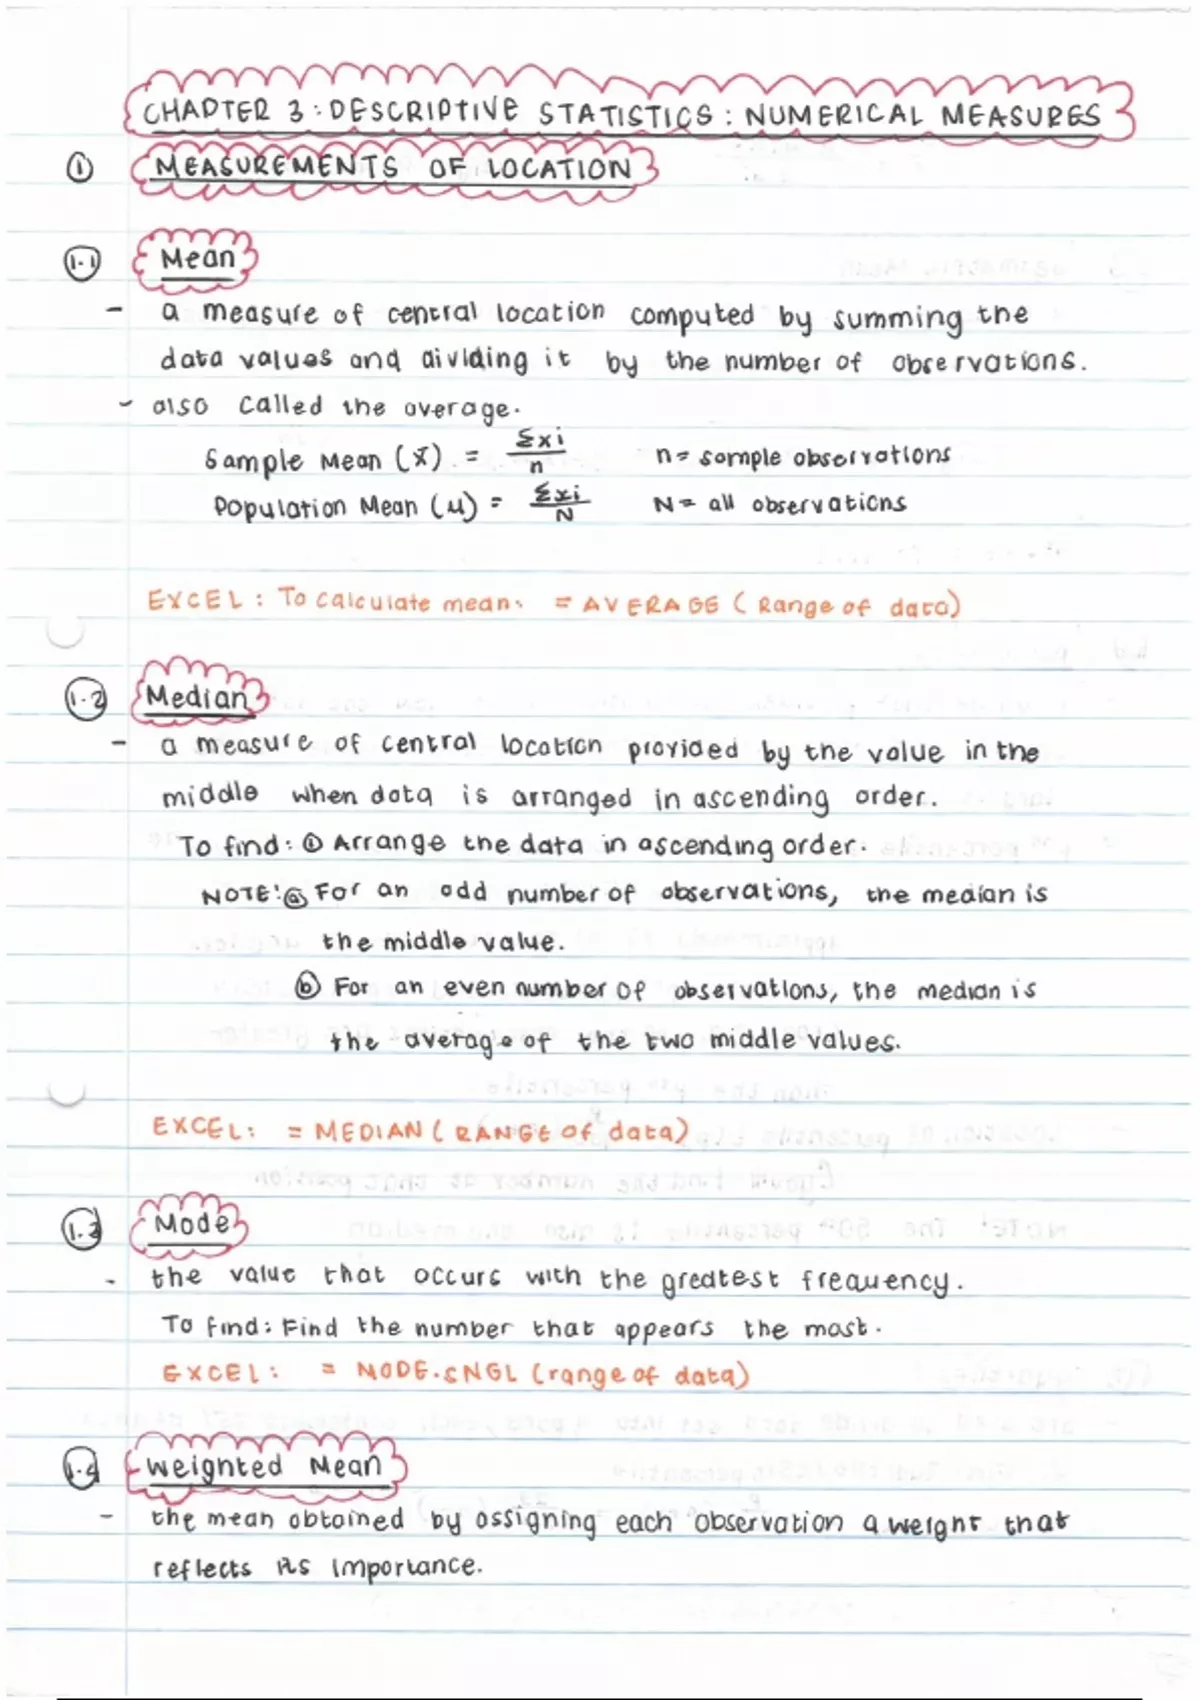 CHAPTER 3 : DESCRIPTIVE STATISTICS : NUMERICAL MEASURES
① MEASUREMENTS OF LOCATION
1.1 Mean
- a measure of central location computed by summing the
data values and dividing it by the number of observations.
- also called the average.
Sample Mean (x̄) = Σxi/n n = sample observations
Population Mean (μ) = Σxi/N N = all observations
EXCEL : To calculate mean: = AVERAGE ( Range of data)
1.2 Median
- a measure of central location provided by the value in the
middle when data is arranged in ascending order.
To find: ① Arrange the data in ascending order.
NOTE: ⓐ For an odd number of observations, the median is
the middle value.
ⓑ For an even number of observations, the median is
the average of the two middle values.
EXCEL: = MEDIAN ( RANGE of data)
1.3 Mode
- the value that occurs with the greatest frequency.
To find: Find the number that appears the most.
EXCEL: = MODE.SNGL (range of data)
1.4 Weighted Mean
- the mean obtained by assigning each observation a weight that
reflects its importance.